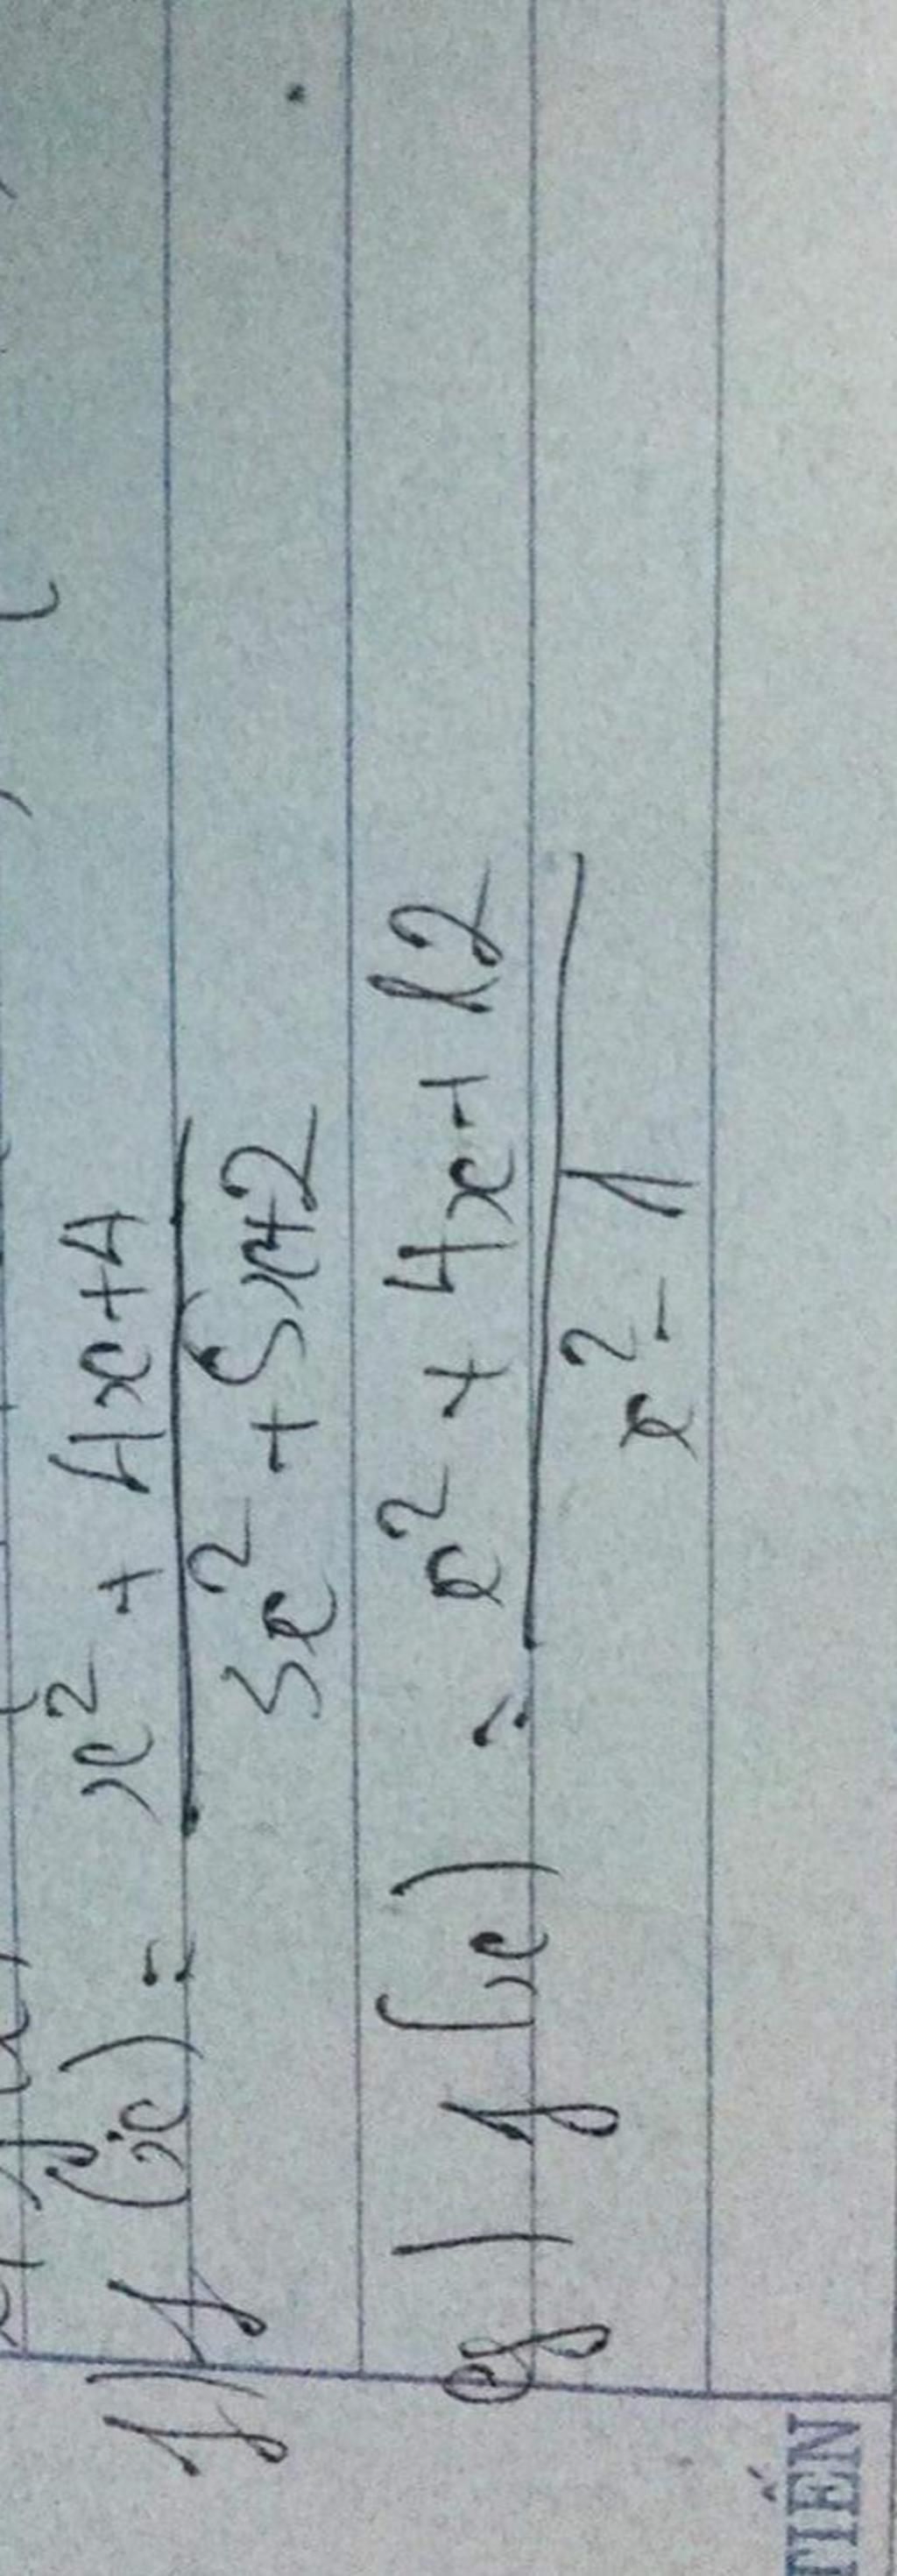 f) f(x) = x² + 4x + 4
3x² + 5x + 2
g) f(x) = x² + 4x + 12
x² - 1
TIẾN